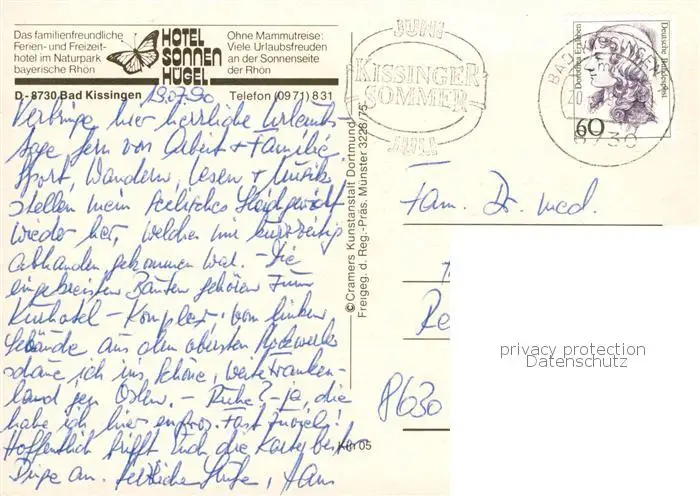 Das familienfreundliche
Ferien- und Freizeit-
hotel im Naturpark
bayerische Rhön
HOTEL
SONNEN
HÜGEL
Ohne Mammutreise:
Viele Urlaubsfreuden
an der Sonnenseite
der Rhön
D-8730 Bad Kissingen
Telefon (0971) 831
19.07.90
Verbringe hier herrliche Urlaubs-
tage fern von Arbeit + Familie.
Sport, Wandern, Lesen + Musik
stellen mein seelisches Gleichgewicht
wieder her, welches mir kurzzeitig
abhanden gekommen war. - Die
eingekreisten Bauten gehören zum
Kurhotel-Komplex; vom linken
Gebäude aus dem obersten Stockwerke
schaue ich ins schöne, weite Franken-
land gen Osten. - Ruhe? - ja, die
habe ich hier en gros. Fast zuviel!
Hoffentlich trifft Euch die Karte bester
Dinge an. Herzliche Grüße, Hans
© Cramers Kunstanstalt Dortmund
Freigeg. d. Reg.-Präs. Münster 3228/75
Kih 05
JUNI
KISSINGER
SOMMER
JULI
BAD KISSINGEN
8730
Dorothea Erxleben
Deutsche Bundespost
60
Fam. Dr. med.
8630
privacy protection
Datenschutz